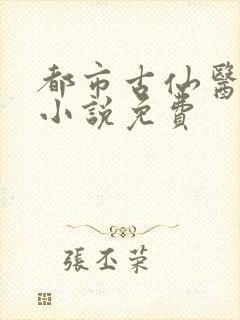 都市古仙醫
小說免費
張丕荣